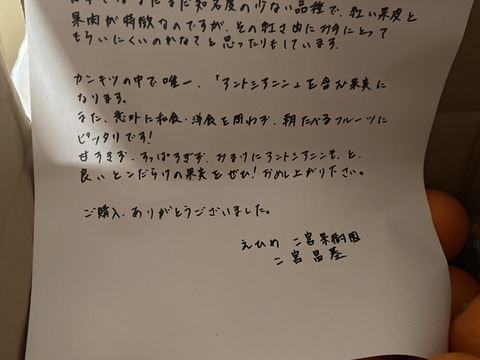 まだまだ知名度の少ない品種で、紅い果皮と
果肉が特徴なのですが、その紅さ由にお手にとって
もらいにくいのかなぁと思ったりもしています。
カンキツの中で唯一、「アントシアニン」を含む果実に
なります。
また、意外に和食・洋食を問わず、朝たべるフルーツに
ピッタリです!
甘すぎず、すっぱすぎず、おまけにアントシアニンも、と、
良いとこだらけの果実をぜひ!おめし上がり下さい。
ご購入、ありがとうございました。
えひめ 二宮果樹園
二宮昌基